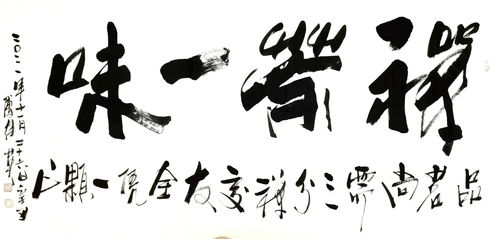 禪茗一味
品茗尚需三分禪交友全凭一顆心
二〇二一年十一月二十六日